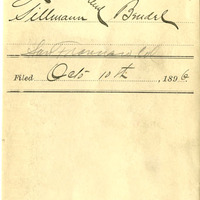 and
Tillmann Bendel
San Francisco Cal
Filed Oct 10th, 1896